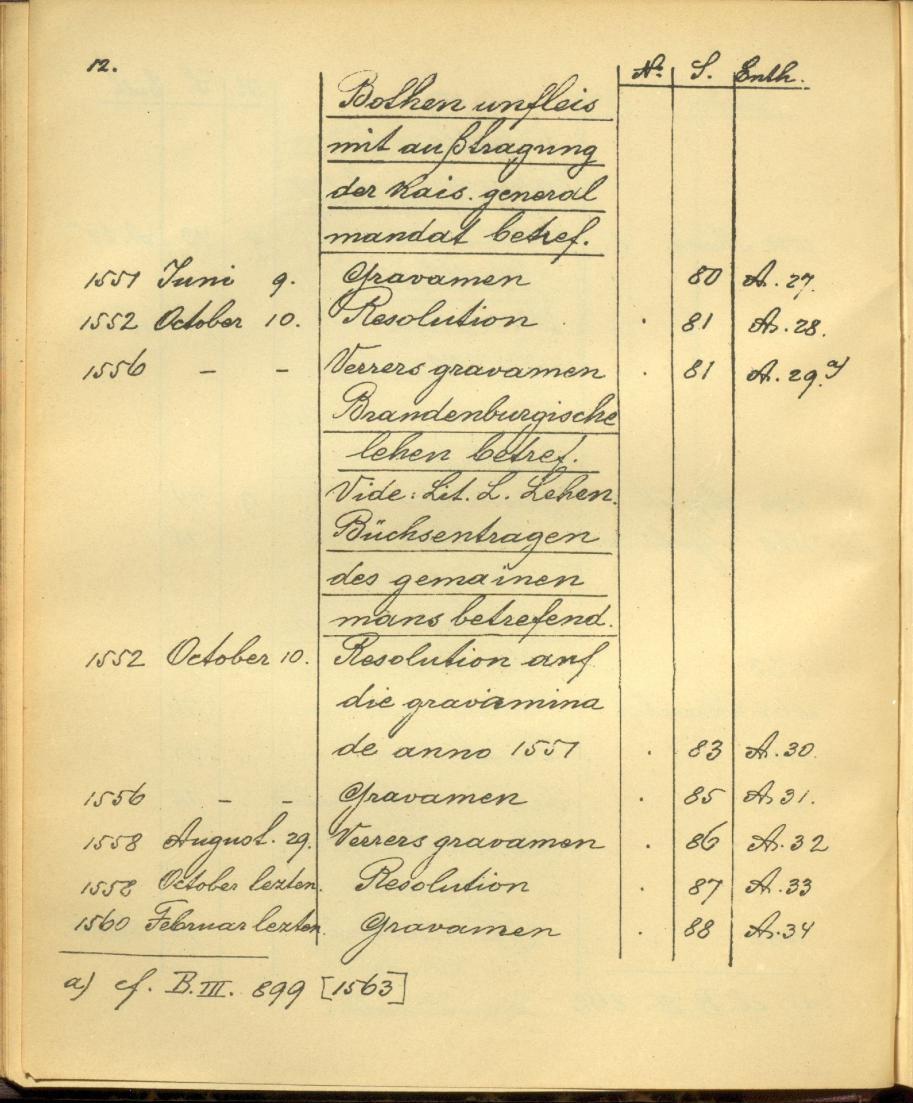 12.
N: S. Enth.
Bothen unfleis
mit außtragung
der kais. general
mandat betref.
1551 Juni 9. Gravamen 80 A. 27.
1552 October 10. Resolution . 81 A. 28.
1556 – – Verrers gravamen . 81 A. 29. a)
Brandenburgische
lehen betref.
Vide: Lit. L. Lehen.
Büchsentragen
des gemainen
mans betrefend.
1552 October 10. Resolution auf
die gravamina
de anno 1551 . 83 A. 30.
1556 – – Gravamen . 85 A. 31.
1558 August. 29. Verrers gravamen . 86 A. 32
1558 October lezten. Resolution . 87 A. 33
1560 Februar lezten. Gravamen . 88 A. 34
a) cf. B. III. 899 [1563]